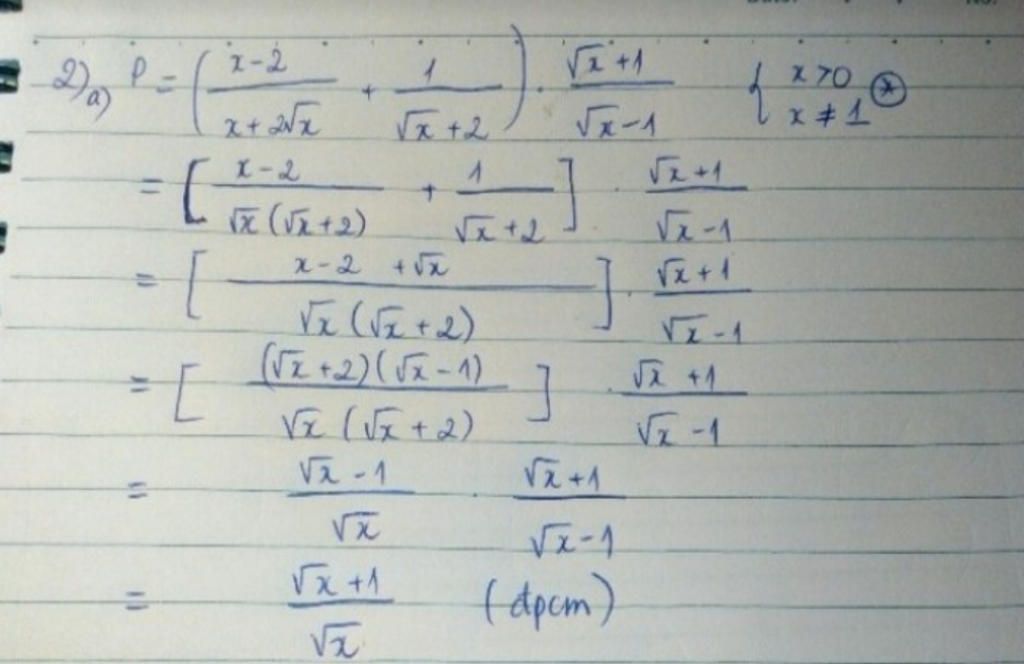 2) a) P = ( (x-2)/(x+2√x) + 1/(√x+2) ) . (√x+1)/(√x-1) { x>0 x≠1 (*)
= [ (x-2)/(√x(√x+2)) + 1/(√x+2) ] . (√x+1)/(√x-1)
= [ (x-2+√x)/(√x(√x+2)) ] . (√x+1)/(√x-1)
= [ (√x+2)(√x-1)/(√x(√x+2)) ] . (√x+1)/(√x-1)
= (√x-1)/√x . (√x+1)/(√x-1)
= (√x+1)/√x (đpcm)